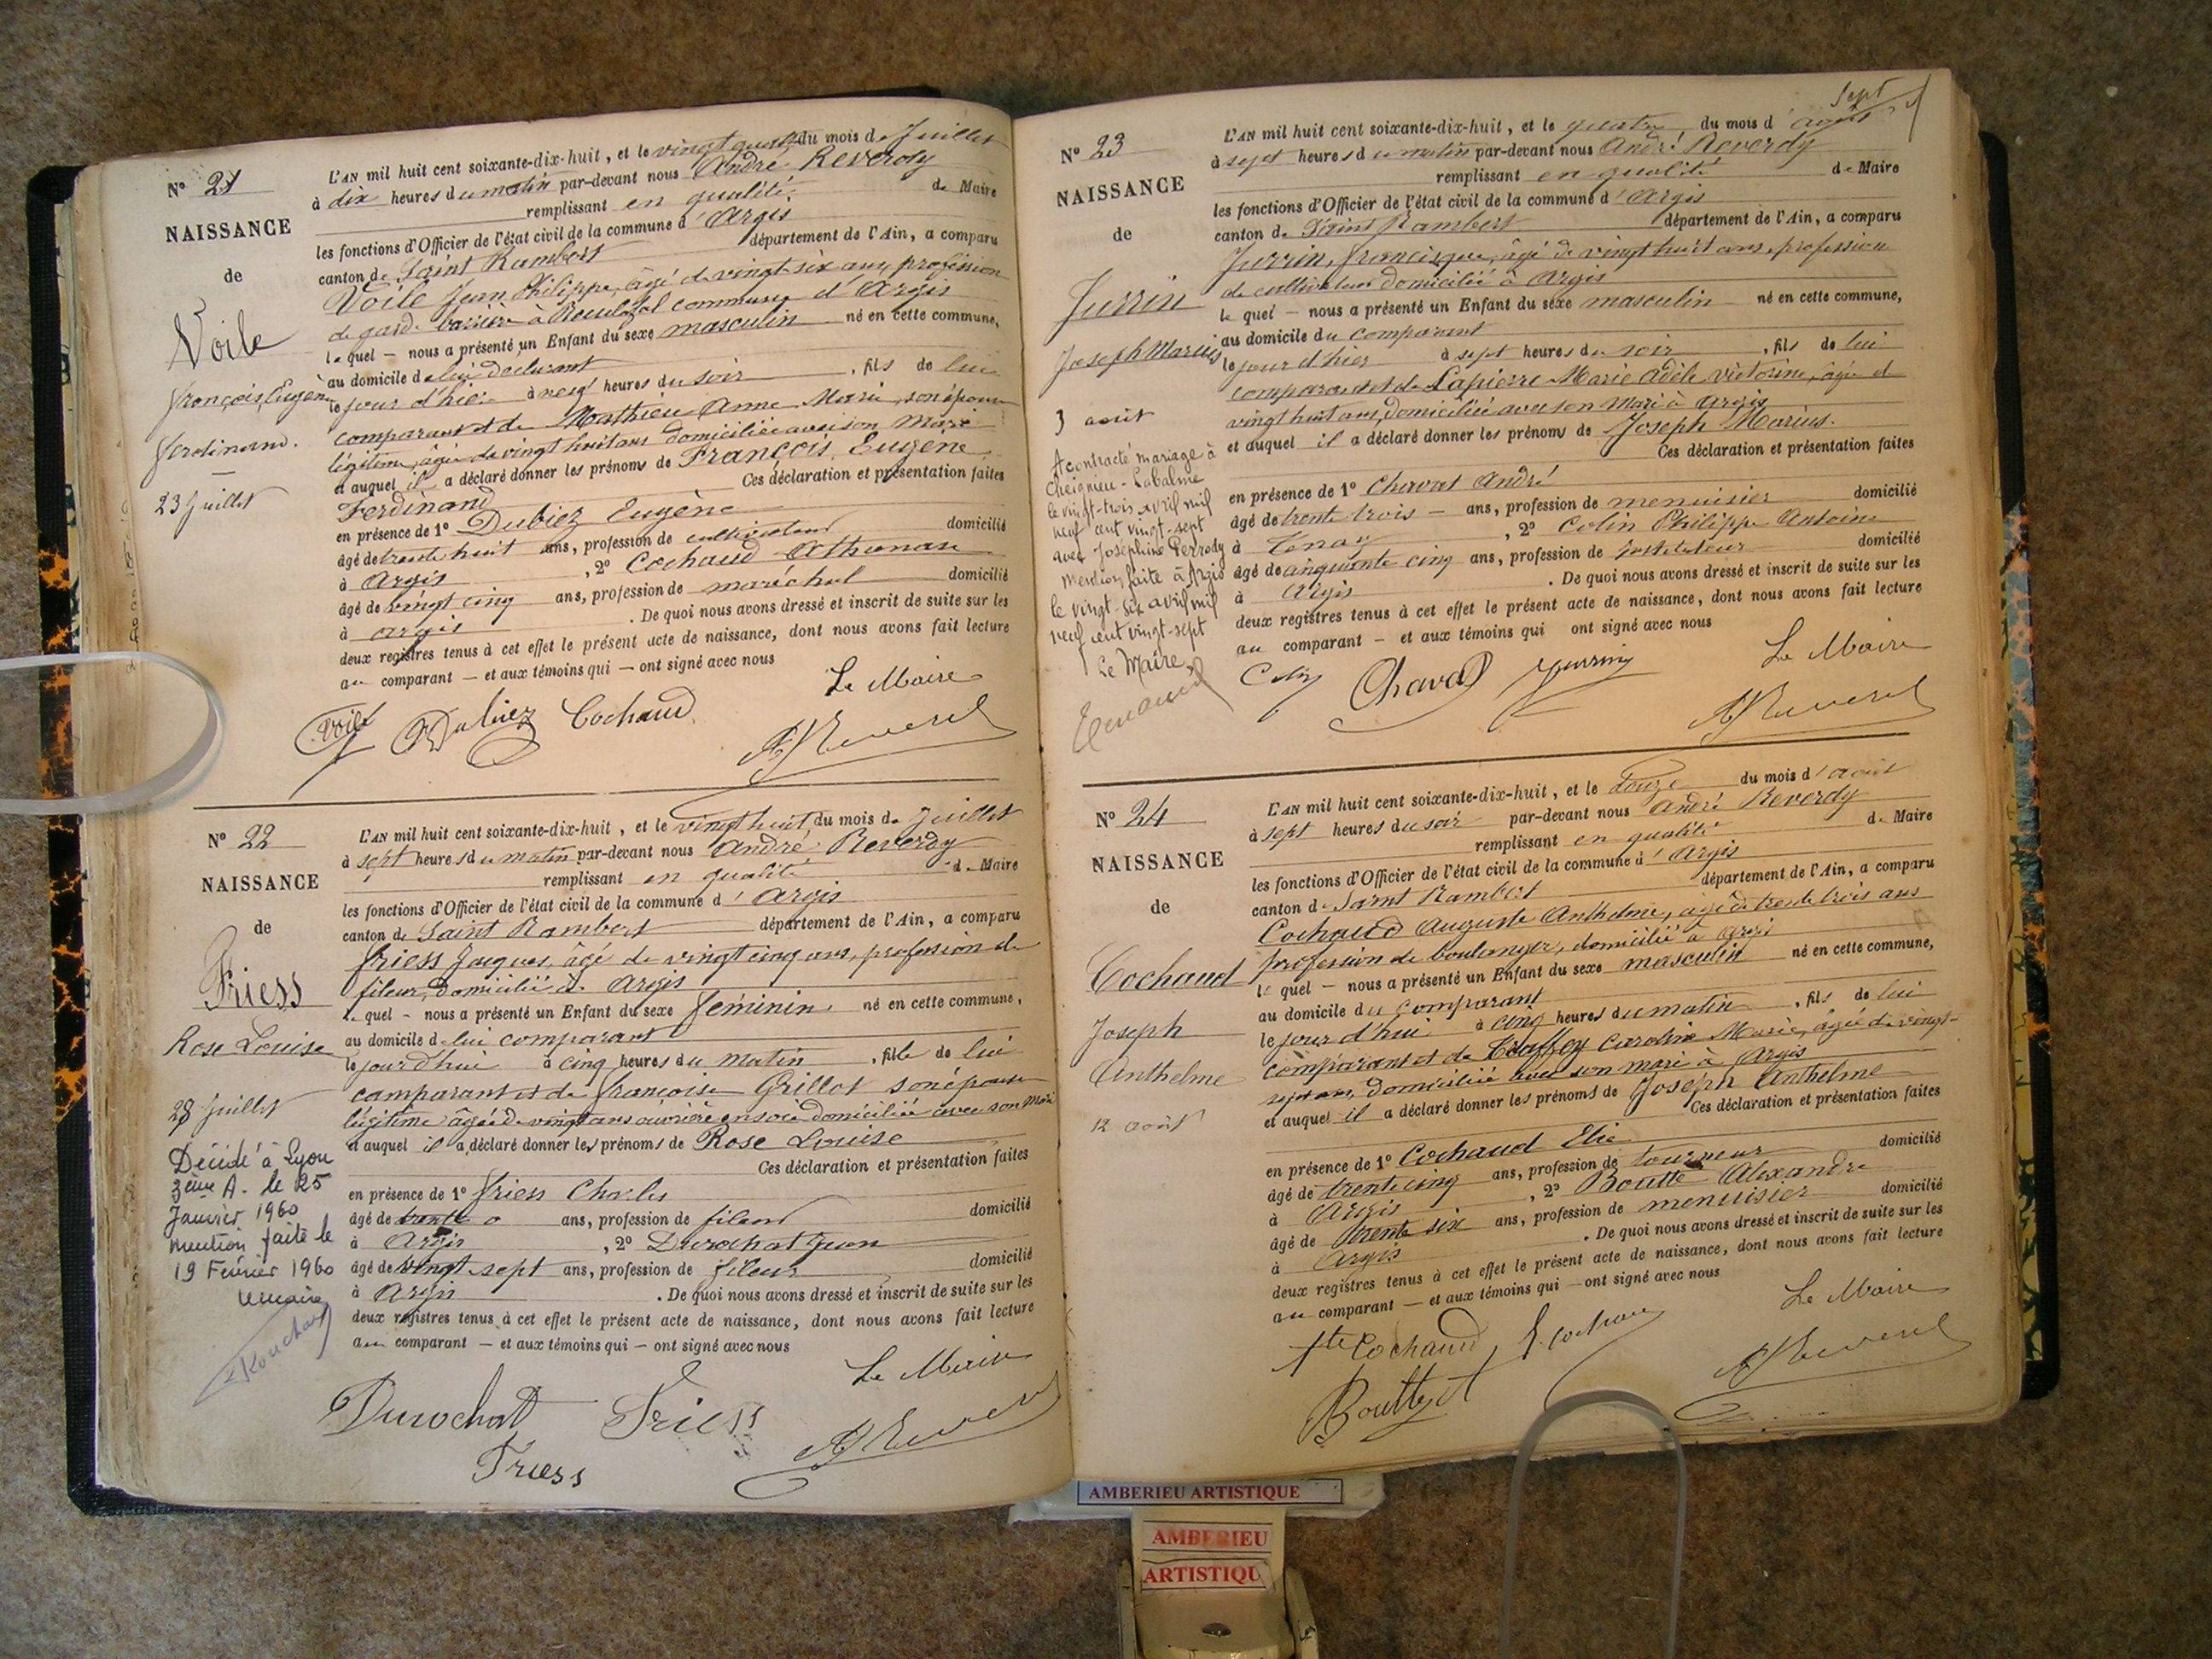 N° 21
NAISSANCE
de
Voile
François, Eugène
Ferdinand.
23 Juillet
L'AN mil huit cent soixante-dix-huit, et le vingt quatre du mois de Juillet
à dix heures du matin par-devant nous André Reverdy
remplissant en qualité de Maire
les fonctions d'Officier de l'état civil de la commune d'Argis
canton de Saint Rambert département de l'Ain, a comparu
Voile Jean Philippe, âgé de vingt six ans, profession
de garde barrière à commune d'Argis
le quel — nous a présenté un Enfant du sexe masculin né en cette commune,
au domicile de lui déclarant
le jour d'hier à neuf heures du soir, fils de lui
comparant et de Matthieu Anne Marie, son épouse
légitime, âgée de vingt huit ans domiciliée avec son Mari
et auquel il a déclaré donner les prénoms de François, Eugène
Ferdinand Ces déclaration et présentation faites
en présence de 1° Dubiez Eugène
âgé de trente huit ans, profession de cultivateur domicilié
à Argis, 2° Cochaud Athanase
âgé de vingt cinq ans, profession de maréchal domicilié
à Argis. De quoi nous avons dressé et inscrit de suite sur les
deux registres tenus à cet effet le présent acte de naissance, dont nous avons fait lecture
au comparant — et aux témoins qui — ont signé avec nous
Le Maire
Voile Dubiez Cochaud
N° 22
NAISSANCE
de
Friess
Rose Louise
28 Juillet
Décédé à Lyon
3ème A. le 25
Janvier 1960
mention faite le
19 Février 1960
L'AN mil huit cent soixante-dix-huit, et le vingt huit du mois de Juillet
à sept heures du matin par-devant nous André Reverdy
remplissant en qualité de Maire
les fonctions d'Officier de l'état civil de la commune d'Argis
canton de Saint Rambert département de l'Ain, a comparu
Friess Jacques, âgé de vingt cinq ans, profession de
fileur, domicilié à Argis
le quel - nous a présenté un Enfant du sexe féminin né en cette commune,
au domicile de lui comparant
le jour d'hui à cinq heures du matin, fille de lui
comparant et de Françoise Grillot son épouse
légitime âgée de vingt ans ouvrière en soie domiciliée avec son Mari
et auquel il a déclaré donner les prénoms de Rose Louise
Ces déclaration et présentation faites
en présence de 1° Friess Charles
âgé de trente ans, profession de fileur domicilié
à Argis, 2° Durochat Jean
âgé de vingt sept ans, profession de fileur domicilié
à Argis. De quoi nous avons dressé et inscrit de suite sur les
deux registres tenus à cet effet le présent acte de naissance, dont nous avons fait lecture
au comparant — et aux témoins qui — ont signé avec nous
Le Maire
Durochat Friess
Friess
N° 23
NAISSANCE
de
Jurrin
Joseph Marius
3 août
A contracté mariage à
Cheignieu-Labalme
le vingt-trois avril mil
neuf cent vingt-sept
avec Joséphine Perrody
Mention faite à Argis
le vingt-six avril mil
neuf cent vingt-sept
Le Maire,
Sept
L'AN mil huit cent soixante-dix-huit, et le quatre du mois d'août
à sept heures du matin par-devant nous André Reverdy
remplissant en qualité de Maire
les fonctions d'Officier de l'état civil de la commune d'Argis
canton de Saint Rambert département de l'Ain, a comparu
Jurrin, Francisque, âgé de vingt huit ans, profession
de cultivateur domicilié à Argis
le quel — nous a présenté un Enfant du sexe masculin né en cette commune,
au domicile du comparant
le jour d'hier à sept heures du soir, fils de lui
comparant et de Lapierre Marie Adèle Victorine, âgée de
vingt huit ans, domiciliée avec son Mari à Argis
et auquel il a déclaré donner les prénoms de Joseph Marius.
Ces déclaration et présentation faites
en présence de 1° Chavat André
âgé de trente trois — ans, profession de menuisier domicilié
à Tenay, 2° Colin Philippe Antoine
âgé de cinquante cinq ans, profession de instituteur domicilié
à Argis. De quoi nous avons dressé et inscrit de suite sur les
deux registres tenus à cet effet le présent acte de naissance, dont nous avons fait lecture
au comparant — et aux témoins qui ont signé avec nous
Le Maire
Colin Chavat Jurrin
N° 24
NAISSANCE
de
Cochaud
Joseph
Anthelme
12 août
L'AN mil huit cent soixante-dix-huit, et le Douze du mois d'août
à sept heures du soir par-devant nous André Reverdy
remplissant en qualité de Maire
les fonctions d'Officier de l'état civil de la commune d'Argis
canton de Saint Rambert département de l'Ain, a comparu
Cochaud Auguste Anthelme, âgé de trente trois ans
profession de boulanger, domicilié à Argis
le quel — nous a présenté un Enfant du sexe masculin né en cette commune,
au domicile du comparant
le jour d'hui à cinq heures du matin, fils de lui
comparant et de Caroline Marie, âgée de vingt-
sept ans, domiciliée avec son mari à Argis
et auquel il a déclaré donner les prénoms de Joseph Anthelme
Ces déclaration et présentation faites
en présence de 1° Cochaud Elie
âgé de trente cinq ans, profession de tourneur domicilié
à Argis, 2° Boutte Alexandre
âgé de trente six ans, profession de menuisier domicilié
à Argis. De quoi nous avons dressé et inscrit de suite sur les
deux registres tenus à cet effet le présent acte de naissance, dont nous avons fait lecture
au comparant — et aux témoins qui — ont signé avec nous
Le Maire
Ate Cochaud E. Cochaud
AMBERIEU ARTISTIQUE
AMBERIEU
ARTISTIQU